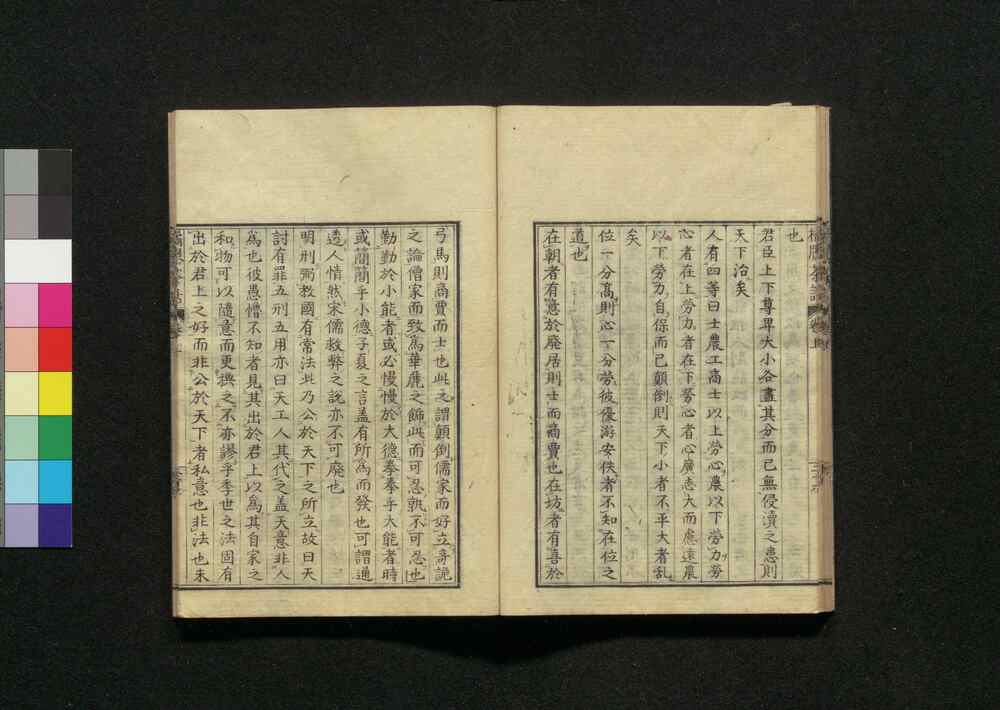 也
君臣上下尊卑大小各盡其分而已無侵瀆之患則
天下治矣
人有四等曰士農工商士以上勞心農以下勞力勞
心者在上勞力者在下勞心者心廣志大而慮遠農
以下勞力自保而已顛倒則天下小者不平大者亂
矣
位一分高則心一分勞彼優游安佚者不知在位之
道也
在朝者有意於廢居則士而商賈也在坊者有善於
弓馬則商賈而士也此之謂顛倒儒家而好立奇詭
之論僧家而致為華麗之飾此而可忍孰不可忍也
勤勤於小能者或必慢慢於大德拳拳乎大能者時
或簡簡乎小德子夏之言蓋有所為而發也可謂通
透人情然宋儒救弊之說亦不可廢也
明刑弼教國有常法此乃公於天下之所立故曰天
討有罪五刑五用亦曰天工人其代之蓋天意非人
為也彼愚憎不知者見其出於君上以為其自家之
和物可以隨意而更換之不亦謬乎季世之法固有
出於君上之好而非公於天下者私意也非法也朱